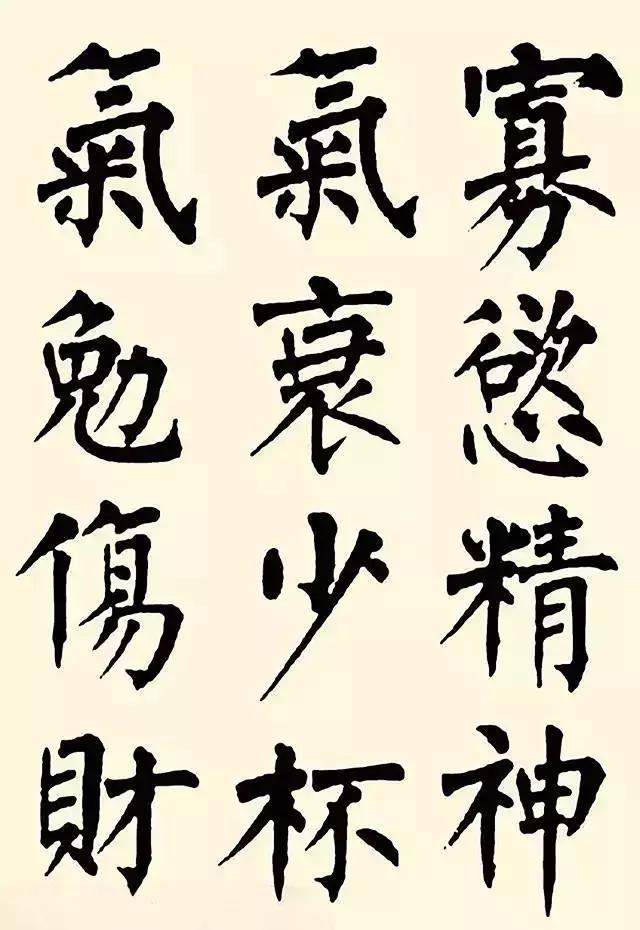 寡慾精神
氣衰少杯
氣勉傷財